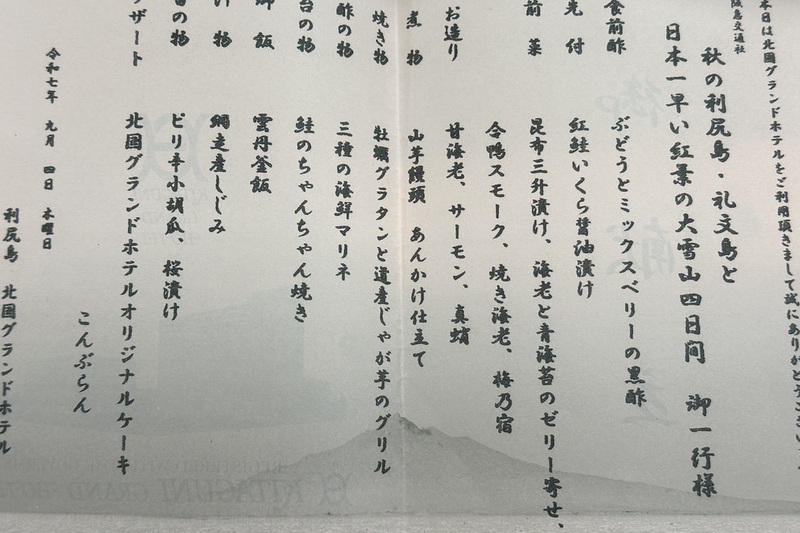 本日は北国グランドホテルをご利用頂きまして誠にありがとうございます
阪急交通社
秋の利尻島・礼文島と
日本一早い紅葉の大雪山四日間 御一行様
食前酢 ぶどうとミックスベリーの黒酢
先付 紅鮭いくら醤油漬け
前菜 昆布三升漬け、海老と青海苔のゼリー寄せ、
合鴨スモーク、焼き海老、梅乃宿
お造り 甘海老、サーモン、真蛸
煮物 山芋饅頭 あんかけ仕立て
焼き物 牡蠣グラタンと遺産じゃが芋のグリル
酢の物 三種の海鮮マリネ
台の物 鮭のちゃんちゃん焼き
御飯 雲丹釜飯
物 網走産しじみ
の物 ピリ辛小胡瓜、桜漬け
ザート 北国グランドホテルオリジナルケーキ
こんぶらん
令和七年 九月 四日 木曜日
利尻島 北国グランドホテル
KITAGUNI GRAND HOTEL